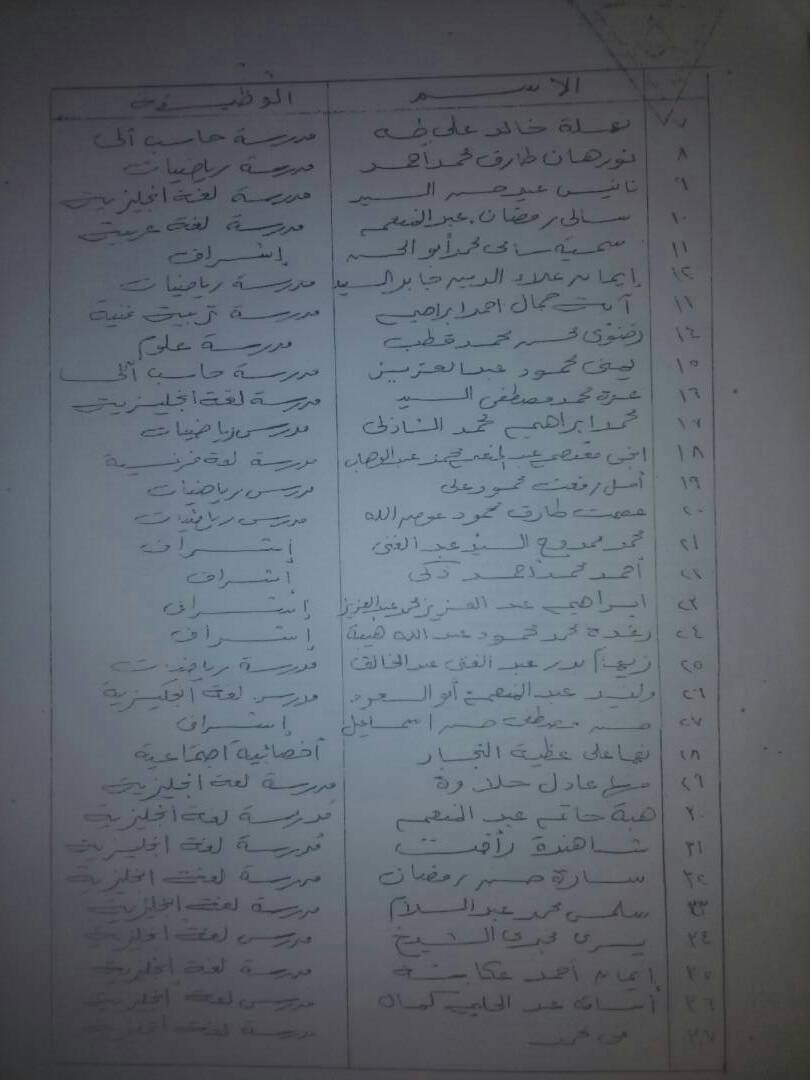 الاسم الوظيفة
٧ عبلة خالد علي طه مدرسة حاسب آلى
٨ نورهان طارق محمد احمد مدرسة رياضيات
٩ عيد حسن السيد مدرسة لغة انجليزية
١٠ سالى رمضان عبد المنعم مدرسة لغة عربية
١١ سمية سامى محمد أبو الحسن إشراف
١٢ إيمان علاء الدين جابر السيد مدرسة رياضيات
١٣ آيات جمال احمد ابراهيم مدرسة تربية فنية
١٤ رضوى محسن محمد قطب مدرسة علوم
١٥ يمنى محمود عبد العزيز مدرسة حاسب آلى
١٦ عزة محمد مصطفى السيد مدرسة لغة انجليزية
١٧ محمد ابراهيم محمد الشاذلى مدرس رياضيات
١٨ عبد المنعم محمد عبد الوهاب مدرسة لغة فرنسية
١٩ أمل رفعت محمود على مدرس رياضيات
٢٠ عصمت طارق محمود عوض الله مدرس رياضيات
٢١ محمد ممدوح السيد عبد الغنى إشراف
٢٢ أحمد محمد أحمد زكى إشراف
٢٣ ابراهيم عبد العزيز محمد عبد العزيز إشراف
٢٤ رغدة محمد محمود عبد الله هيبة إشراف
٢٥ ريهام بدر عبد الغنى عبد الخالق مدرسة رياضيات
٢٦ وليد عبد المنعم أبو السعود مدرس لغة انجليزية
٢٧ حسن مصطفى حسن اسماعيل إشراف
٢٨ على عطية النجار أخصائية اجتماعية
٢٩ مها عادل حلاوة مدرسة لغة انجليزية
٣٠ هبة حاتم عبد المنعم مدرسة لغة انجليزية
٣١ شاهندة رأفت مدرسة لغة انجليزية
٣٢ سارة حسن رمضان مدرسة لغة انجليزية
٣٣ سلمى محمد عبد السلام مدرسة لغة انجليزية
٣٤ يسرى مجدى الشيخ مدرس لغة انجليزية
٣٥ إيمان أحمد عكاشة مدرسة لغة انجليزية
٣٦ عبد الحليم كمال مدرس لغة انجليزية
٣٧ مدرسة لغة انجليزية